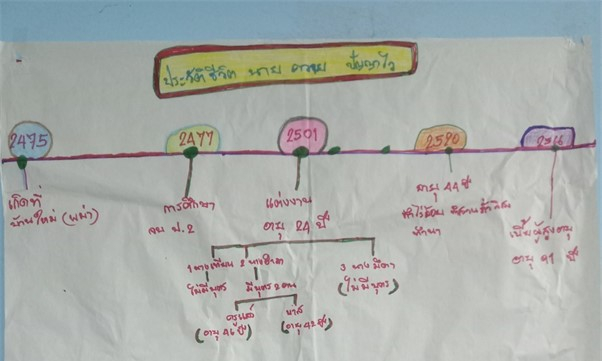 ประวัติชีวิต นาย ปัญญาไว
2475
2477
2501
2520
เกิดที่
บ้านใหม่ (พม่า)
การศึกษา
จบ ป.2
แต่งงาน
อายุ 24 ปี
อายุ 44 ปี
ทำไร่อ้อย
เบี้ยผู้สูงอายุ
อายุ 91 ปี
1 นางเทียน 2 นาง
ไม่มีบุตร
มีบุตร 2 คน
3 นาง มีดา
(ไม่มีบุตร)
(อายุ 46 ปี)
(อายุ 42 ปี)